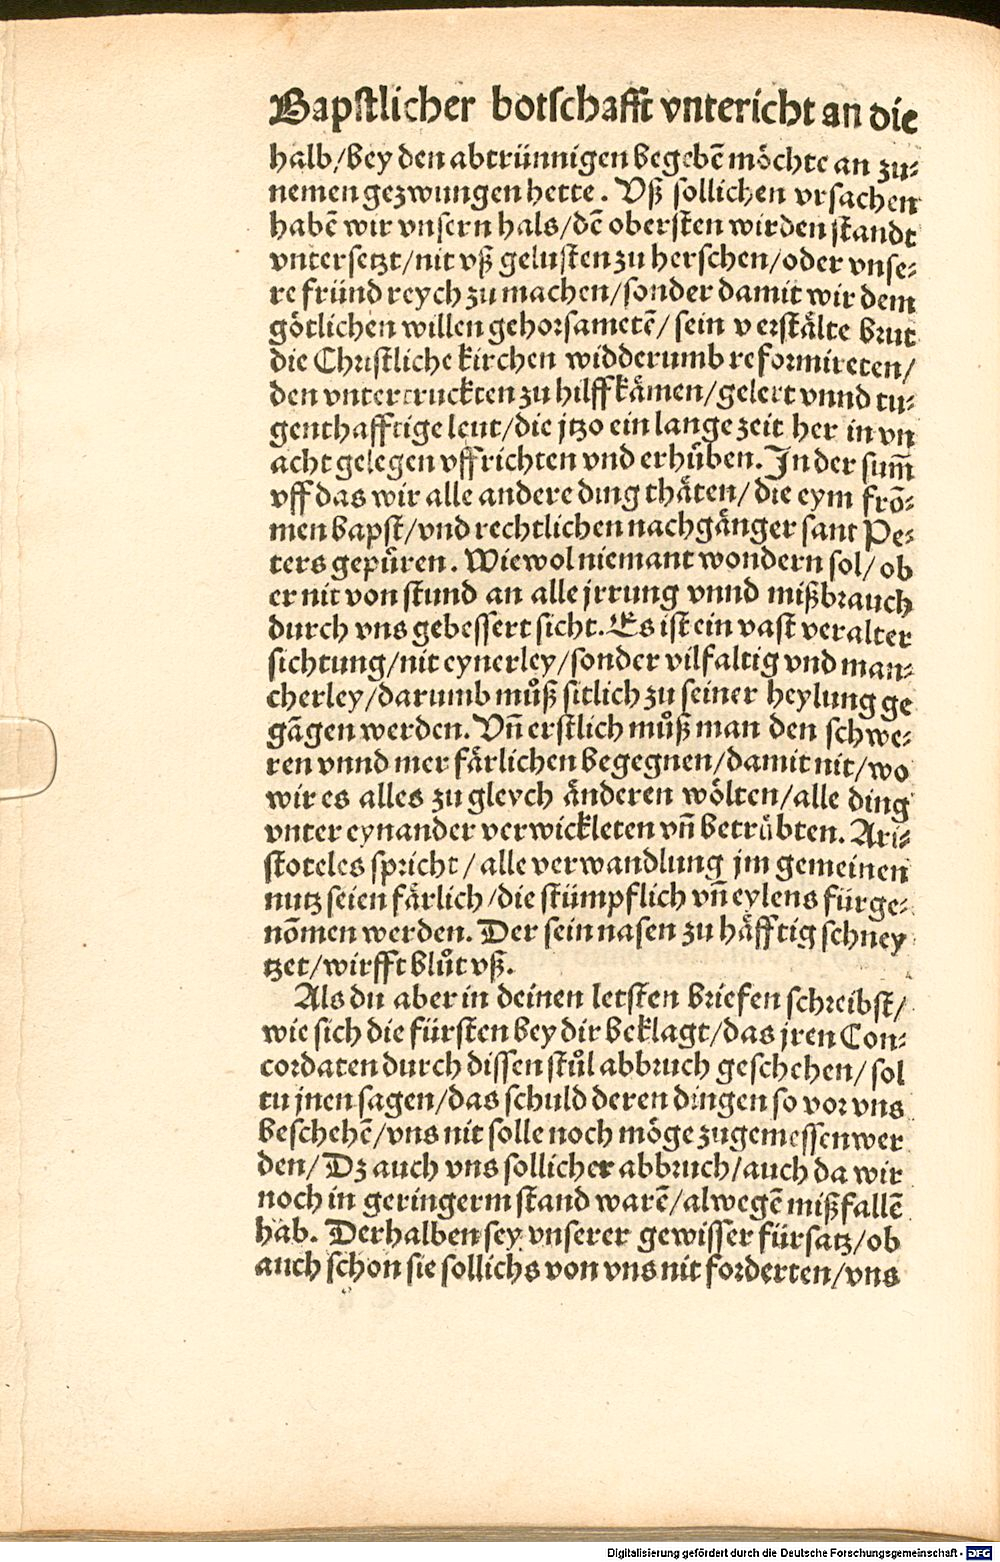 Bapstlicher botschafft vntericht an die
halb/bey den abtrünnigen begebē möchte an zu-
nemen gezwungen hette. Vß sollichen vrsachen
habē wir vnsern hals/dē obersten wirden standt
vntersetzt/nit vß gelusten zu herschen/oder vnse-
re fründ reych zu machen/sonder damit wir dem
götlichen willen gehorsametē/ sein verstälte brut
die Christliche kirchen widderumb reformireten/
den vntertruckten zu hilff kämen/gelert vnnd tu-
genthafftige leut/die jtzo ein lange zeit her in vn
acht gelegen vffrichten vnd erhüben. In der sum̄
vff das wir alle andere ding thäten/ die eym frō-
men bapst/vnd rechtlichen nachgänger sant Pe-
ters gepüren. Wiewol niemant wondern sol/ ob
er nit von stund an alle jrrung vnnd mißbrauch
durch vns gebessert sicht. Es ist ein vast veralter
sichtung/nit eynerley/sonder vilfaltig vnd man-
cherley/darumb můß sitlich zu seiner heylung ge
gāgen werden. Vn̄ erstlich můß man den schwe-
ren vnnd mer färlichen begegnen/damit nit/wo
wir es alles zu gleych änderen wölten/alle ding
vnter eynander verwickleten vn̄ betrübten. Ari-
stoteles spricht/ alle verwandlung jm gemeinen
nutz seien färlich/die stümpflich vn̄ eylens fürge-
nōmen werden. Der sein nasen zu häfftig schney
tzet/wirfft blůt vß.
Als du aber in deinen letsten briefen schreibst/
wie sich die fürsten bey dir beklagt/das jren Con-
cordaten durch dissen stůl abbruch geschehen/ sol
tu jnen sagen/das schuld deren dingen so vor vns
beschehē/vns nit solle noch möge zugemessen wer
den/ Dz auch vns sollicher abbruch/auch da wir
noch in geringerm stand warē/alwegē mißfallē
hab. Derhalben sey vnserer gewisser fürsatz/ob
auch schon sie sollichs von vns nit forderten/vns
Digitalisierung gefördert durch die Deutsche Forschungsgemeinschaft - DFG